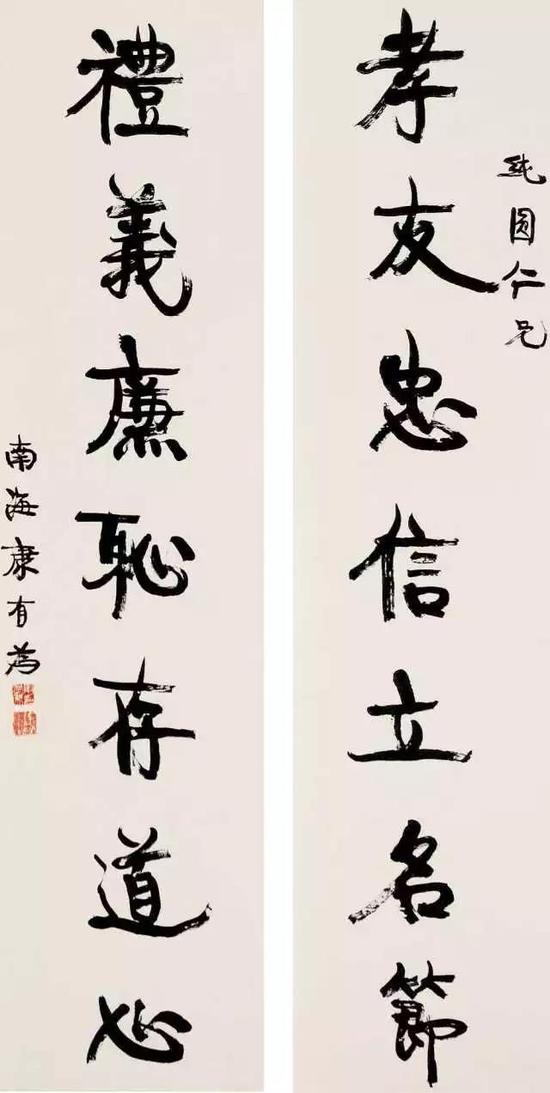 純圓仁兄
孝友忠信立名節
禮義廉恥存道心
南海康有為